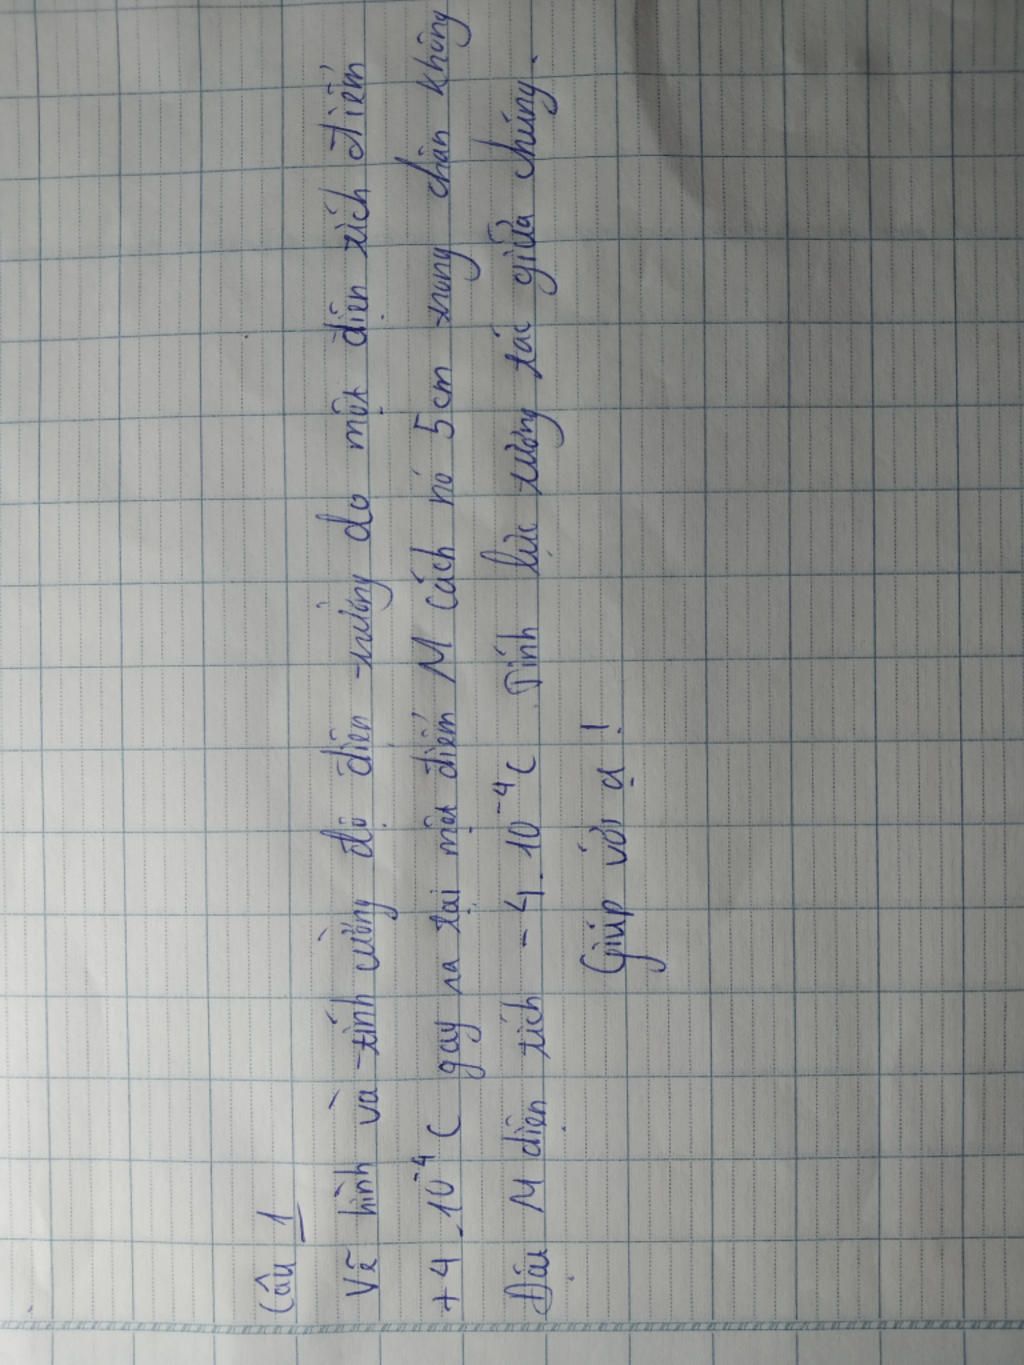 Câu 1
Vẽ hình và tính cường độ điện trường do một điện tích điểm
+4.10⁻⁴ C gây ra tại một điểm M cách nó 5cm trong chân không
Đặt M điện tích -4.10⁻⁴C. Tính lực tương tác giữa chúng.
Giúp với ạ!